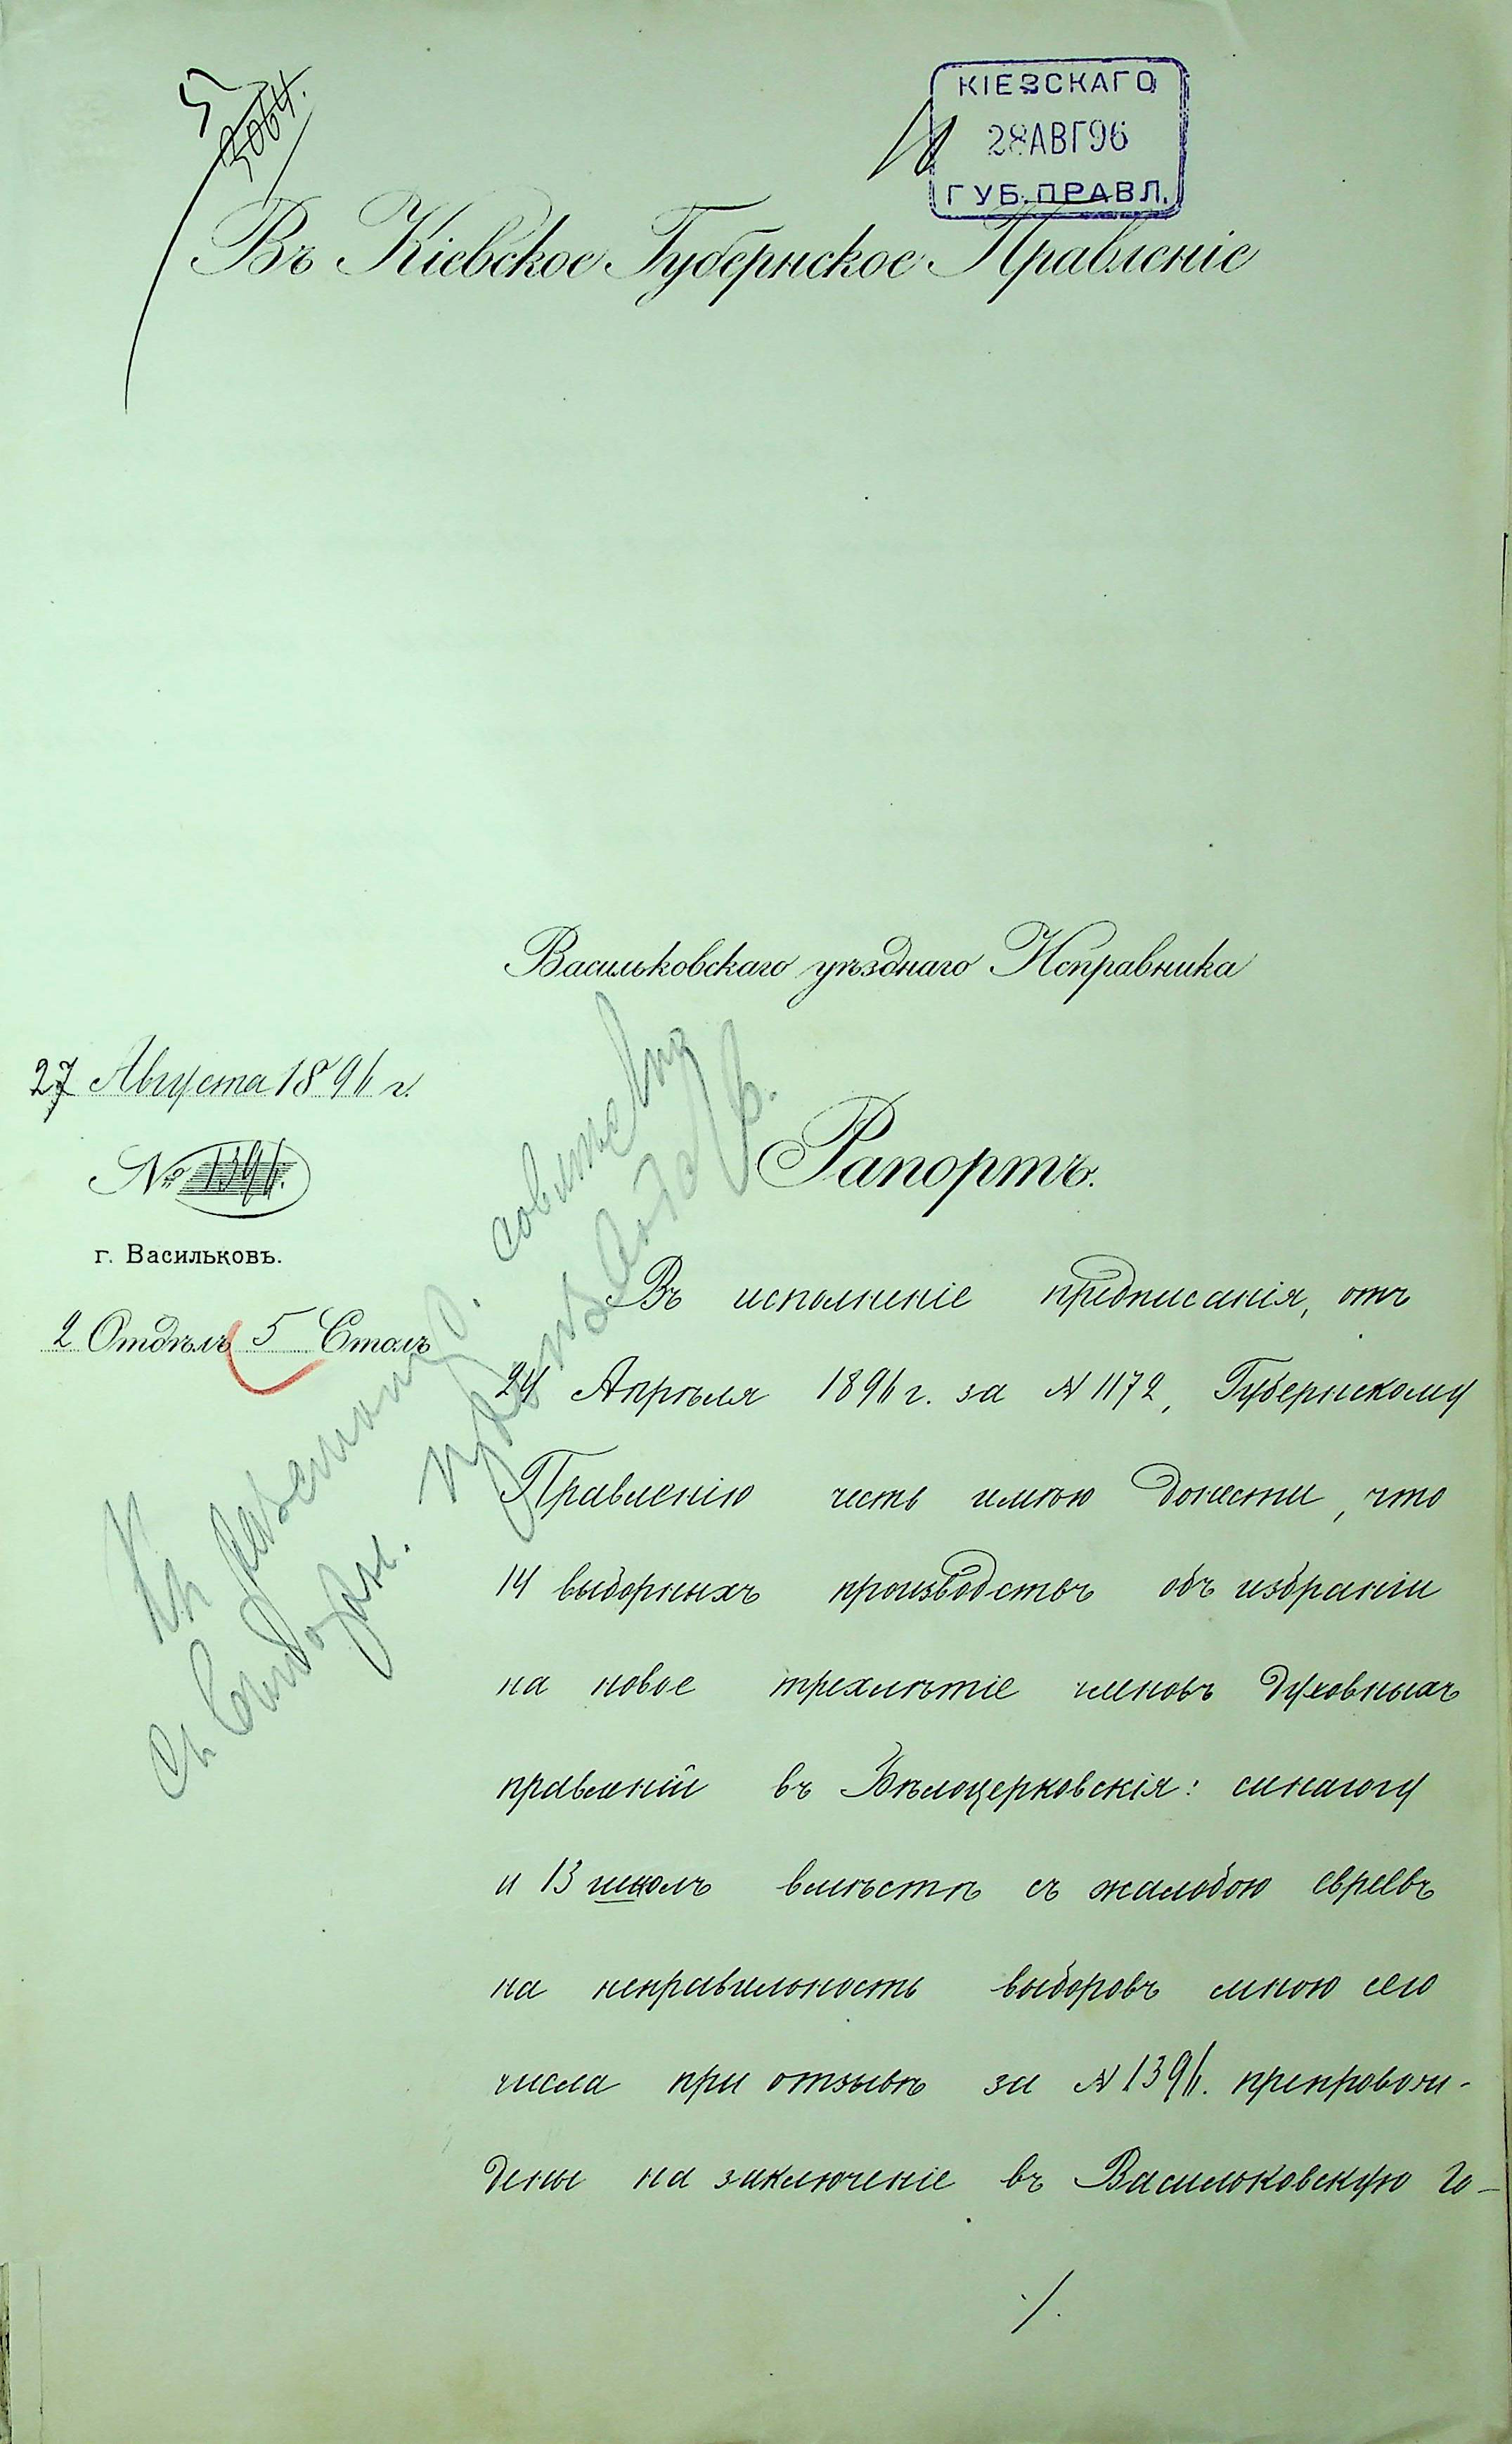 5
3064.
КІЕВСКАГО
28 АВГ 96
ГУБ. ПРАВЛ.
Въ Кіевское Губернское Правленіе
Васильковскаго уѣзднаго Исправника
27 Августа 1896 г.
№ 1396.
г. Васильковъ.
2 Отдѣлъ 5 Столъ
Рапортъ.
Въ исполненіе предписанія, отъ
24 Апрѣля 1896 г. за № 1172, Губернскому
Правленію честь имѣю донести, что
14 выборныхъ производствъ объ избраніи
на новое трехлѣтіе членовъ духовныхъ
правленій въ Бѣлоцерковскія: синагогу
и 13 школъ вмѣстѣ съ жалобою евреевъ
на неправильность выборовъ мною сего
числа при отзывѣ за № 1396. препровож-
дены на заключеніе въ Васильковскую Го-
./.